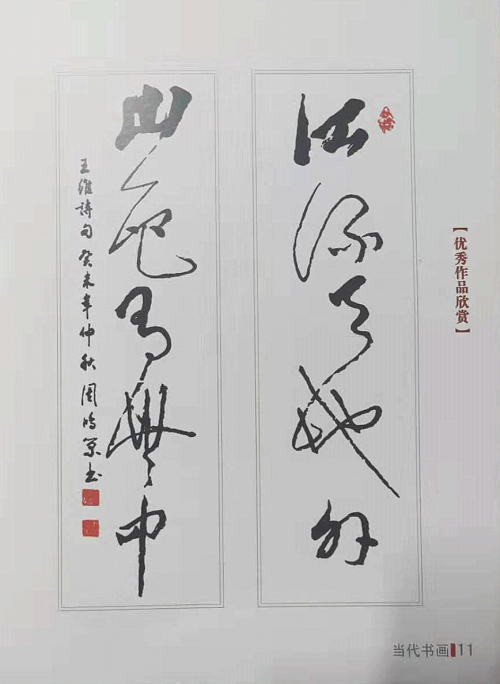 江流天地外
山色有無中
王維詩句 癸未年仲秋 周鸿景书
【优秀作品欣赏】
当代书画 11